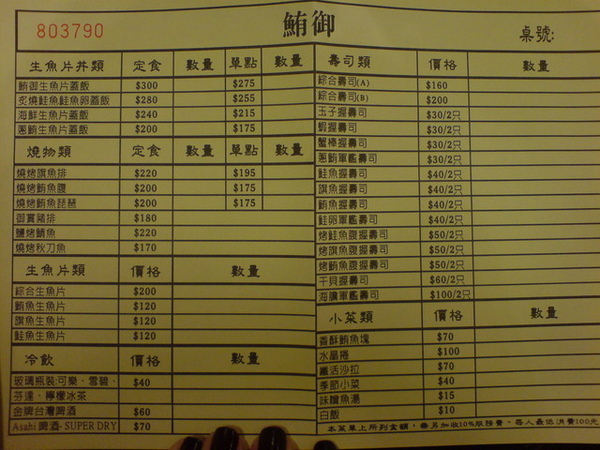 803790
鮪御
桌號:
生魚片丼類 定食 數量 單點 數量
鮪御生魚片蓋飯 $300 $275
炙燒鮭魚鮭魚卵蓋飯 $280 $255
海鮮生魚片蓋飯 $240 $215
蔥鮪生魚片蓋飯 $200 $175
燒物類 定食 數量 單點 數量
燒烤旗魚排 $220 $195
燒烤鮪魚腹 $200 $175
燒烤鮪魚琵琶 $200 $175
御賞豬排 $180
鹽烤鯖魚 $200
燒烤秋刀魚 $170
生魚片類 價格 數量
綜合生魚片 $200
鮪魚生魚片 $120
旗魚生魚片 $120
鮭魚生魚片 $120
冷飲 價格 數量
玻璃瓶裝:可樂、雪碧、 $40
芬達、檸檬冰茶
金牌台灣啤酒 $60
Asahi 啤酒- SUPER DRY $70
壽司類 價格 數量
綜合壽司(A) $160
綜合壽司(B) $200
玉子握壽司 $30/2只
蝦握壽司 $30/2只
蟹棒握壽司 $30/2只
蔥鮪軍艦壽司 $30/2只
鮭魚握壽司 $40/2只
旗魚握壽司 $40/2只
鮪魚握壽司 $40/2只
鮭卵軍艦壽司 $40/2只
烤鮭魚腹握壽司 $50/2只
烤旗魚腹握壽司 $50/2只
烤鮪魚腹握壽司 $50/2只
干貝握壽司 $60/2只
海膽軍艦壽司 $100/2只
小菜類 價格 數量
香酥鮪魚塊 $70
水晶捲 $100
纖活沙拉 $70
季節小菜 $40
味噌魚湯 $15
白飯 $10
本菜單上所列金額，需另加收10%服務費，每人最低消費100元